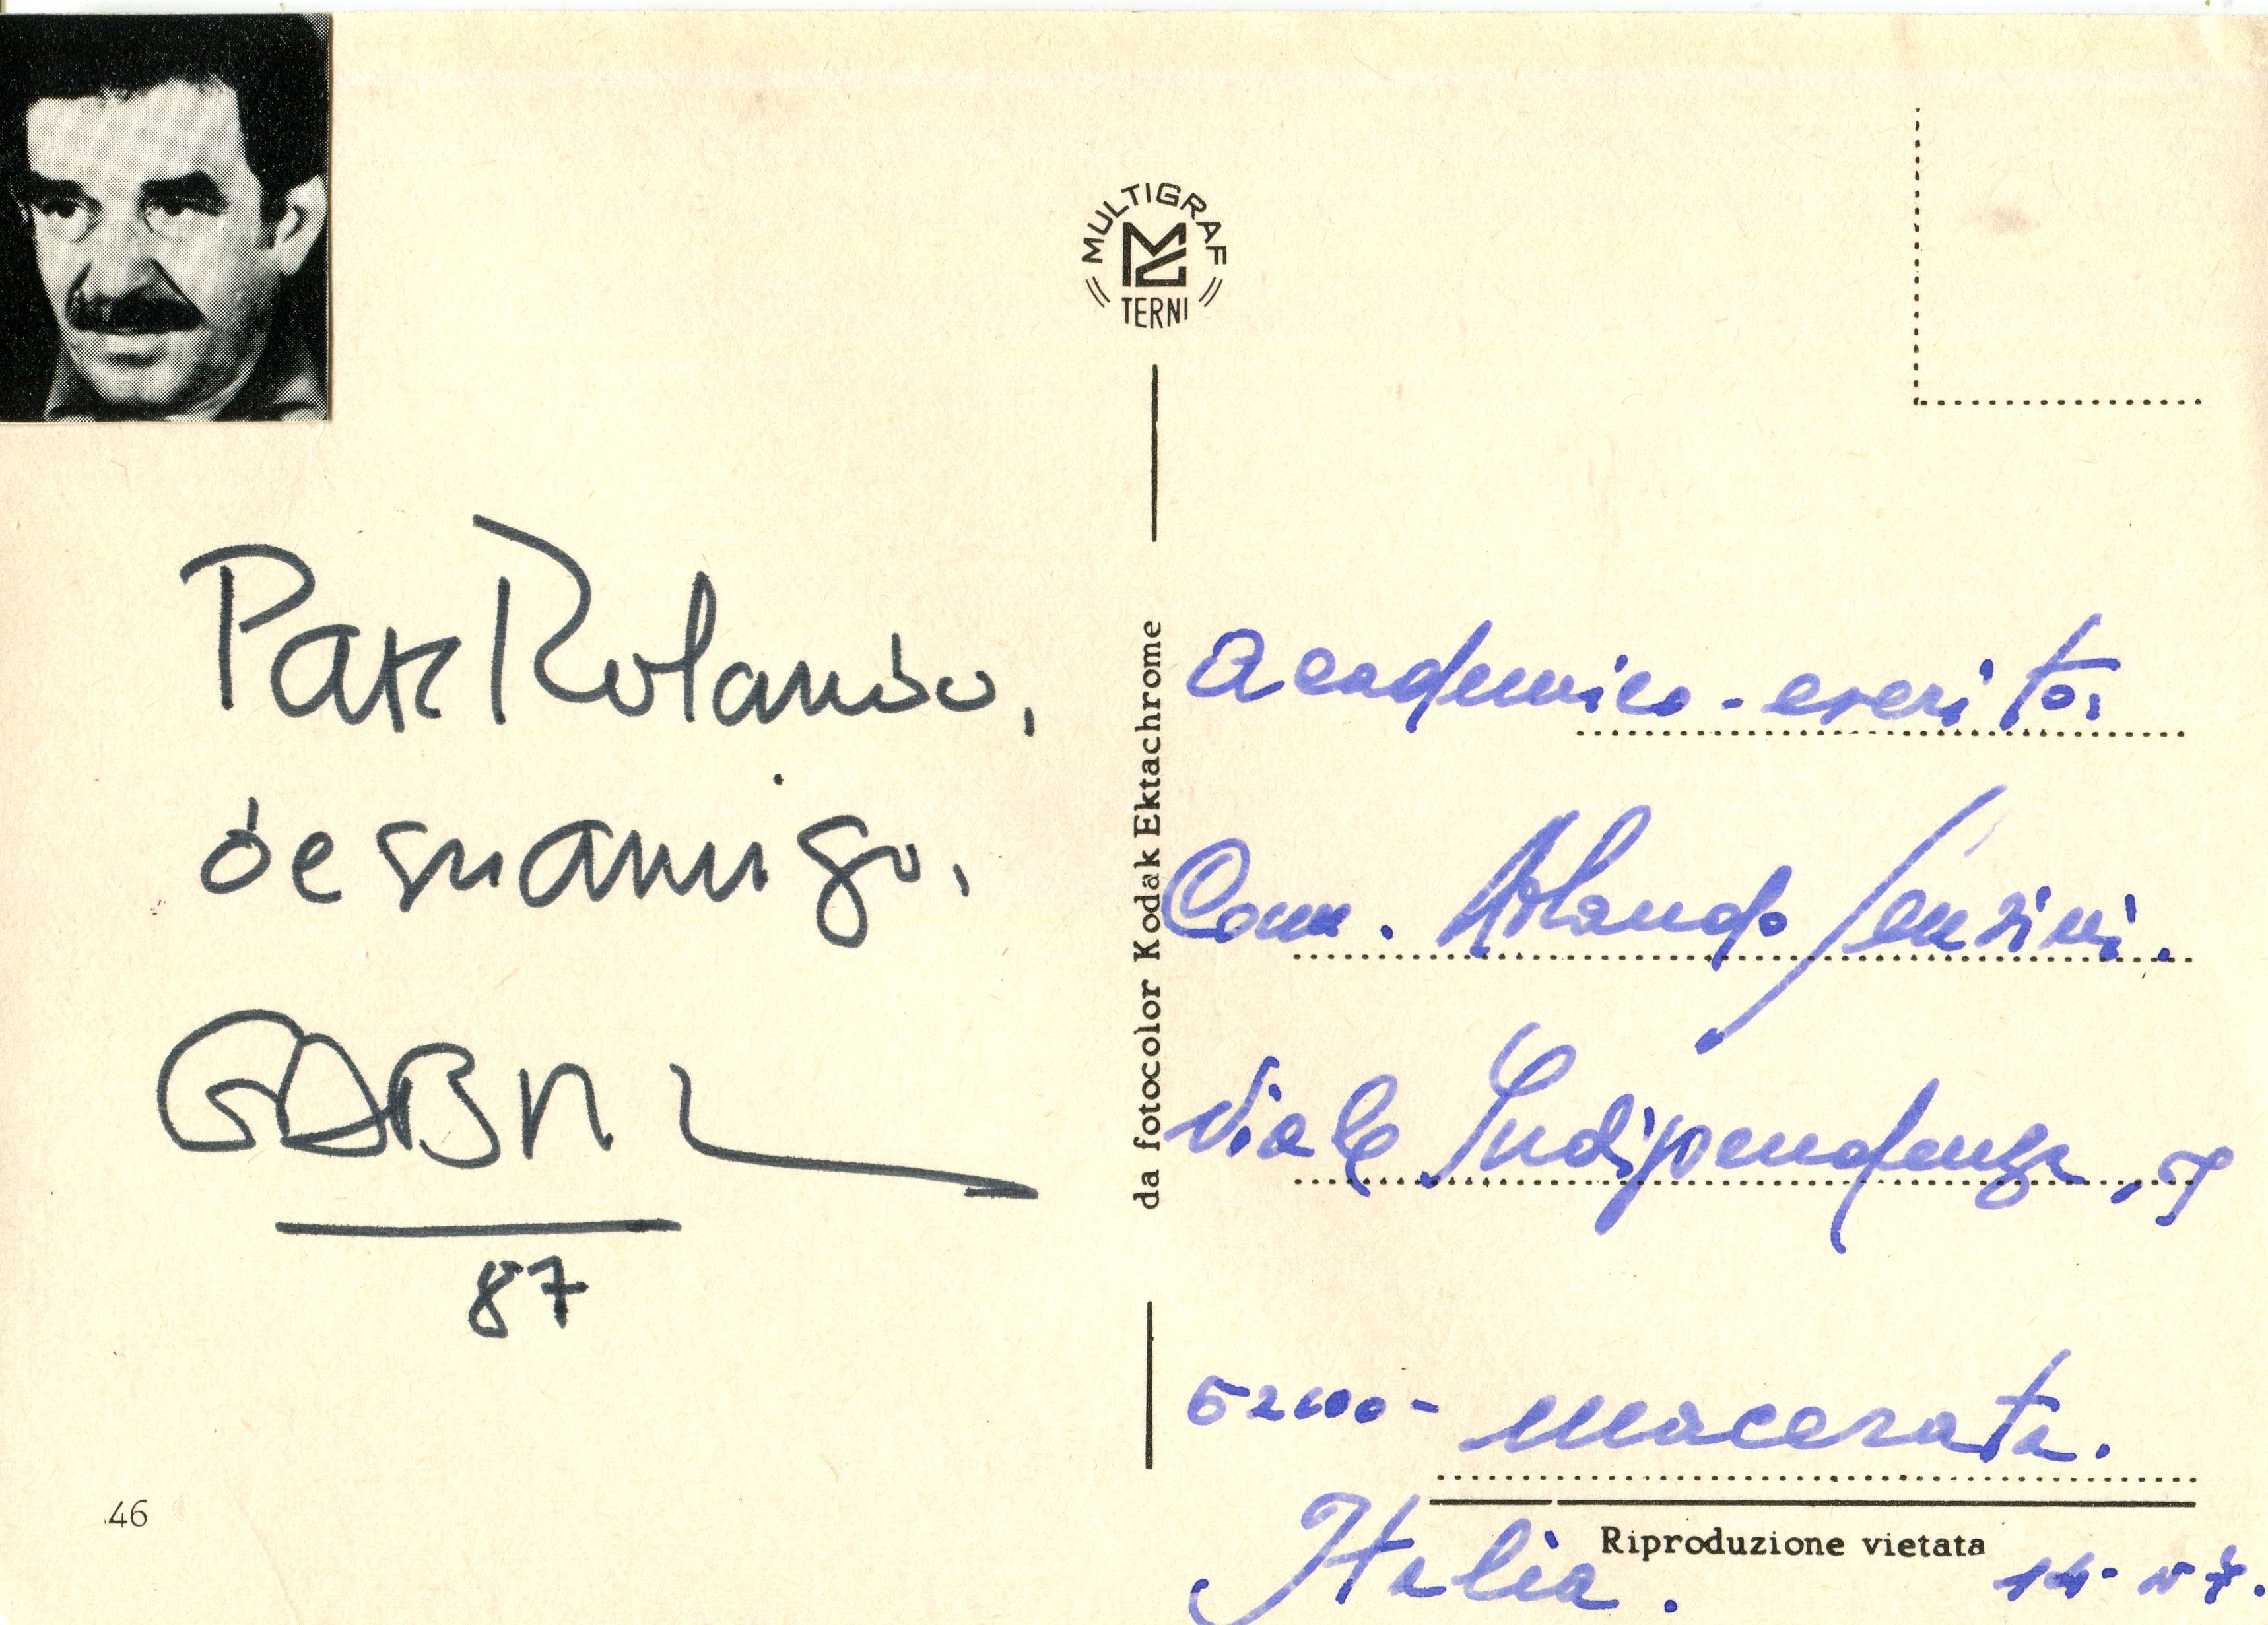 MULTIGRAF
TERNI
Para Rolando,
de su amigo,
GABRIEL
87
46
da fotocolor Kodak Ektachrome
Academico-escritor
Comm. Rolando
Viale Indipendenza,
62100- Macerata.
Italia.
Riproduzione vietata